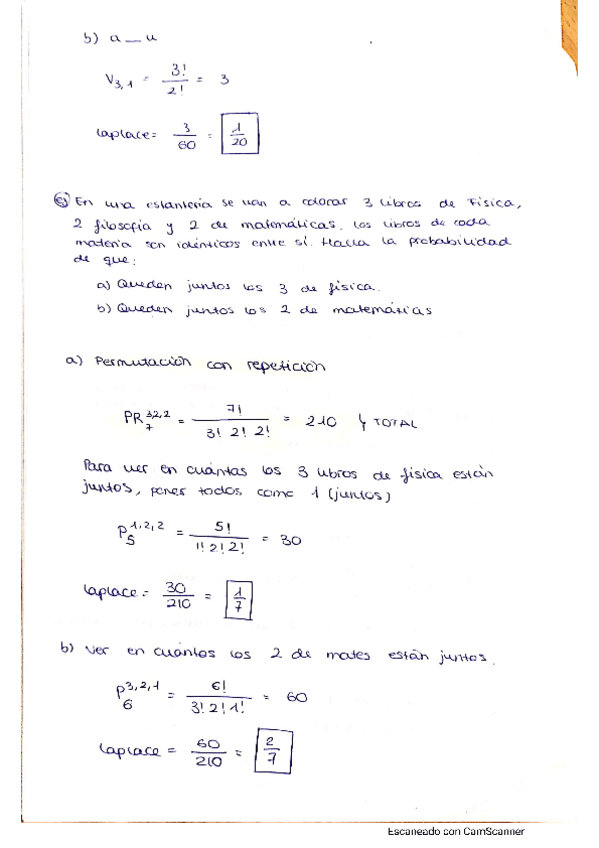 b) a __ u
V3,1 = 3!/2! = 3
Laplace = 3/60 = 1/20
En una estantería se van a colocar 3 libros de física,
2 filosofía y 2 de matemáticas. Los libros de cada
materia son idénticos entre sí. Halla la probabilidad
de que:
a) Queden juntos los 3 de física.
b) Queden juntos los 2 de matemáticas
a) Permutación con repetición
PR7^3,2,2 = 7!/3! 2! 2! = 210 TOTAL
Para ver en cuántas los 3 libros de física están
juntos, poner todos como 1 (juntos)
P5^1,2,2 = 5!/1! 2! 2! = 30
Laplace = 30/210 = 1/7
b) Ver en cuántos los 2 de mates están juntos.
P6^3,2,1 = 6!/3! 2! 1! = 60
Laplace = 60/210 = 2/7
Escaneado con CamScanner